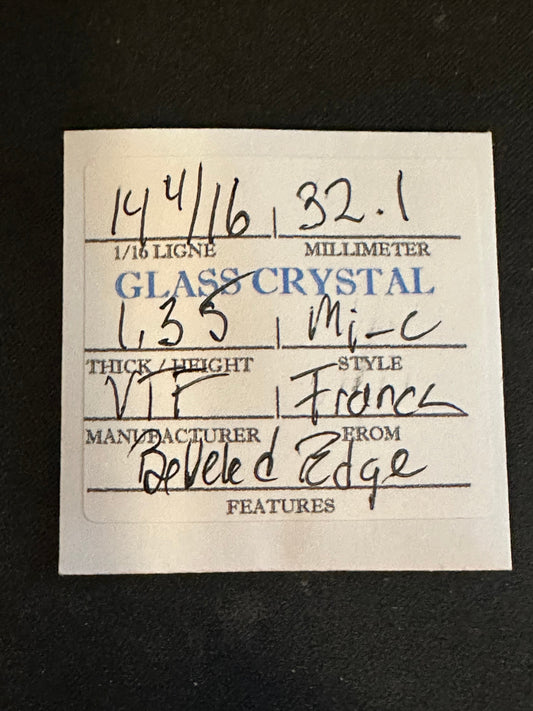 14 4/16 | 32.1
1/16 LIGNE MILLIMETER
GLASS CRYSTAL
1.35 | Mi-C
THICK / HEIGHT STYLE
VTF | France
MANUFACTURER FROM
Beveled Edge
FEATURES